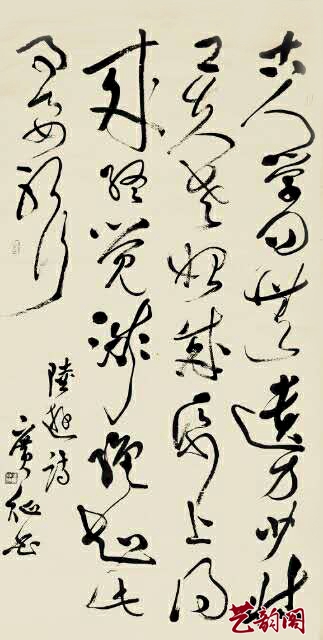 古人学问无遗力少壮
工夫老始成纸上得
来终觉浅绝知此
事要躬行
陸游诗
艺韵阁